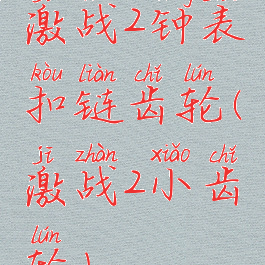 激战2钟表
kòu liàn chǐ lún
扣链齿轮(
jī zhàn xiǎo chǐ
激战2小齿
lún
轮)